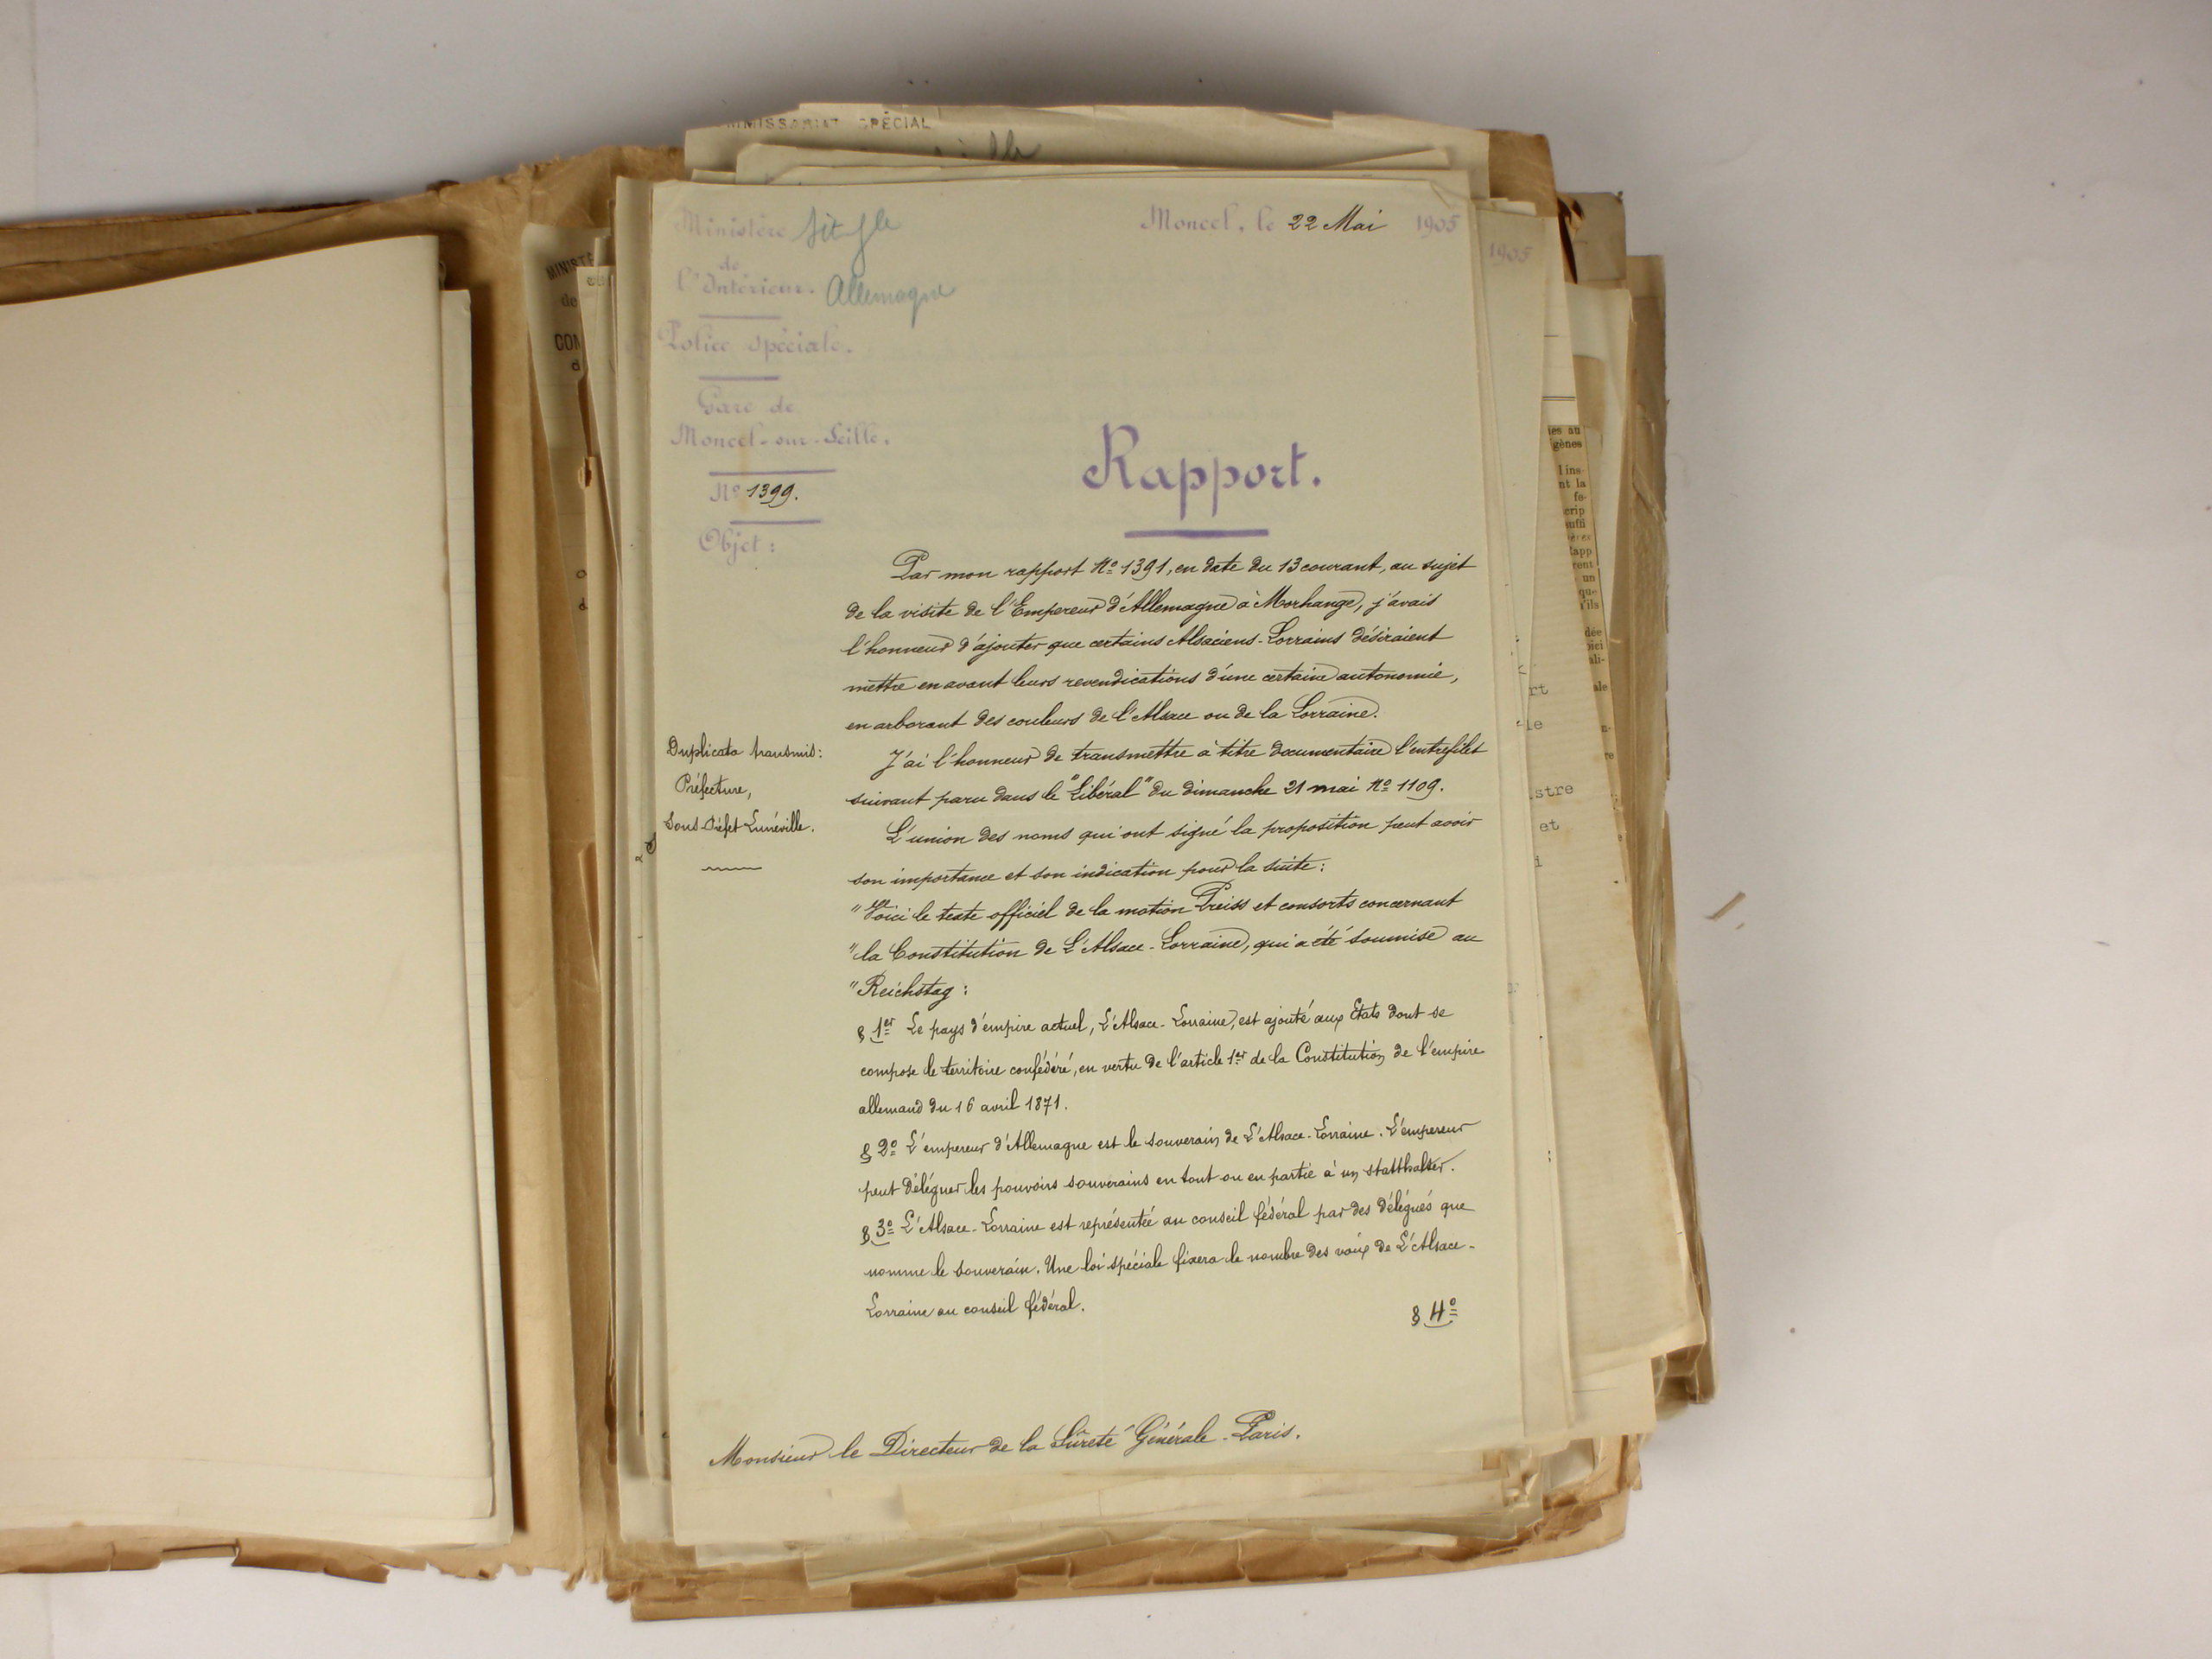 SPÉCIAL
Ministère
de
l'Intérieur.
Allemagne
Police spéciale.
Gare de
Moncel-sur-Seille.
No 1399.
Objet :
Moncel, le 22 Mai 1905
1905
Rapport.
Par mon rapport No 1391, en date du 13 courant, au sujet
de la visite de l'Empereur d'Allemagne à Morhange, j'avais
l'honneur d'ajouter que certains Alsaciens-Lorrains désiraient
mettre en avant leurs revendications d'une certaine autonomie,
en arborant des couleurs de l'Alsace ou de la Lorraine.
Duplicata transmis :
Préfecture,
Sous-Préfet Lunéville.
J'ai l'honneur de transmettre à titre documentaire l'entrefilet
suivant paru dans le "Libéral" du dimanche 21 mai No 1109.
L'union des noms qui ont signé la proposition peut avoir
son importance et son indication pour la suite :
"Voici le texte officiel de la motion Preiss et consorts concernant
"la Constitution de L'Alsace-Lorraine, qui a été soumise au
"Reichstag :
§ 1er Le pays d'empire actuel, L'Alsace-Lorraine, est ajouté aux Etats dont se
compose le territoire confédéré, en vertu de l'article 1er de la Constitution de l'empire
allemand du 16 avril 1871.
§ 2o L'empereur d'Allemagne est le souverain de L'Alsace-Lorraine. L'empereur
peut déléguer les pouvoirs souverains en tout ou en partie à un statthalter.
§ 3o L'Alsace-Lorraine est représentée au conseil fédéral par des délégués que
nomme le souverain. Une loi spéciale fixera le nombre des voix de L'Alsace-
Lorraine au conseil fédéral.
§ 4o
Monsieur le Directeur de la Sûreté Générale-Paris.